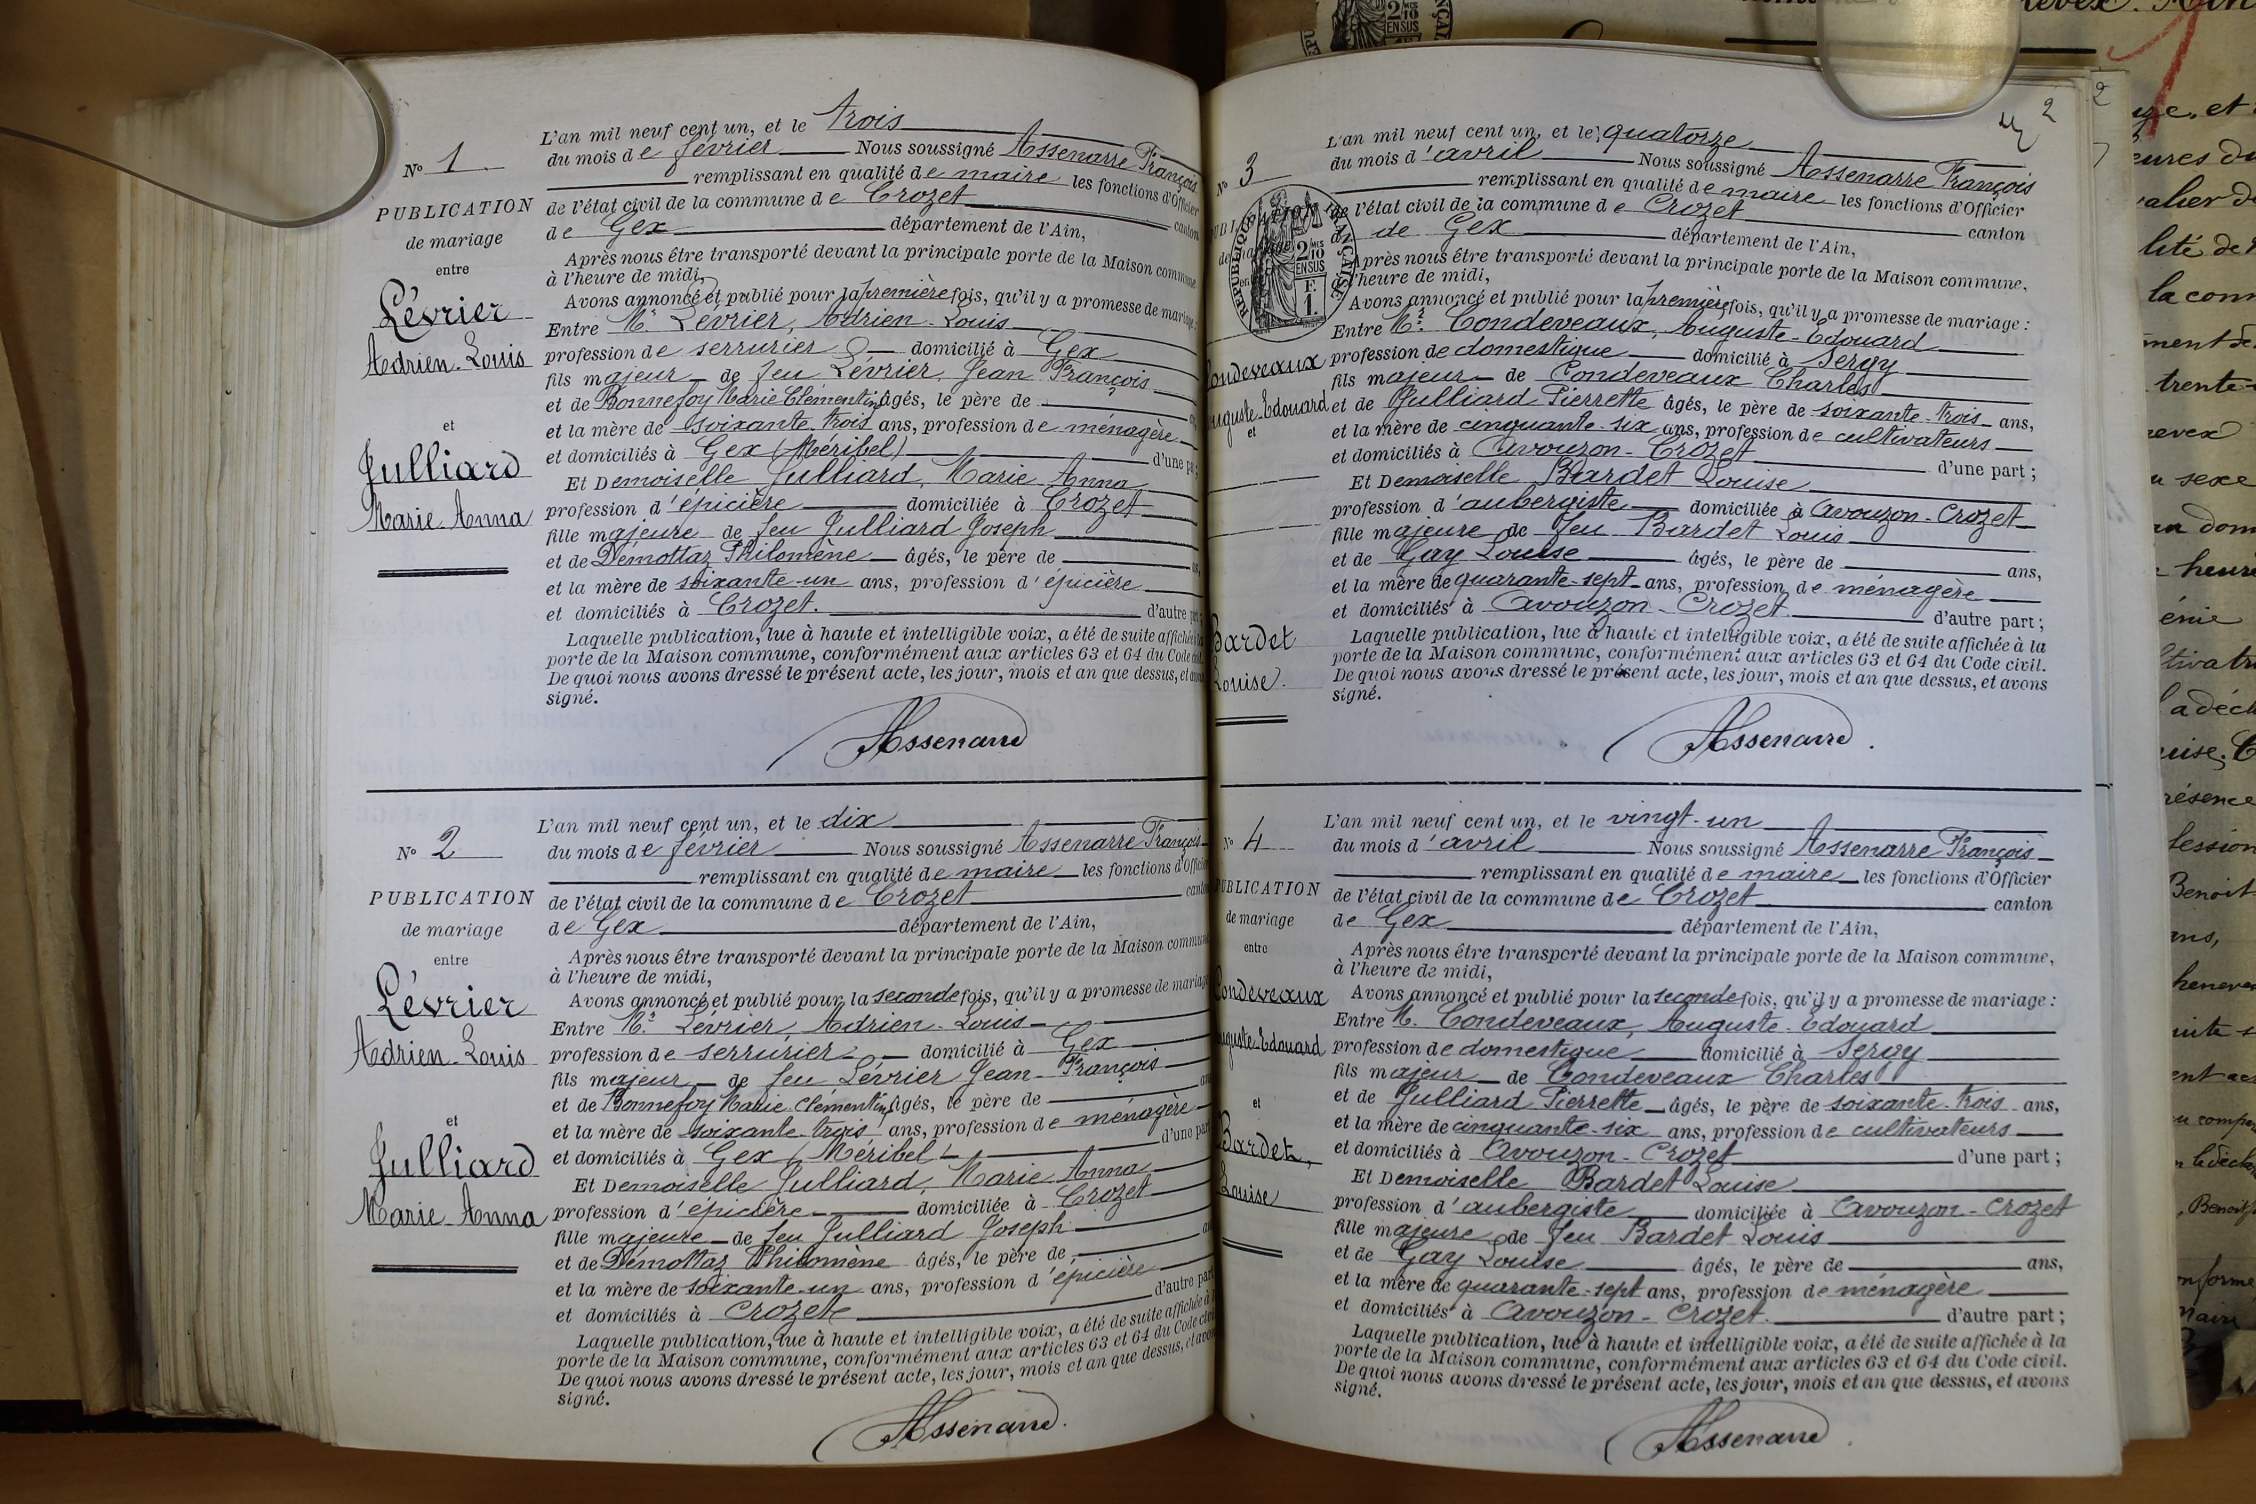 N° 1
PUBLICATION
de mariage
entre
Lévrier
Adrien-Louis
et
Julliard
Marie-Anna
L'an mil neuf cent un, et le trois
du mois de février Nous soussigné Assenarre François
remplissant en qualité de maire les fonctions d'Officier
de l'état civil de la commune de Crozet canton
de Gex département de l'Ain,
Après nous être transporté devant la principale porte de la Maison commune
à l'heure de midi,
Avons annoncé et publié pour la première fois, qu'il y a promesse de mariage :
Entre Mr Lévrier, Adrien-Louis
profession de serrurier domicilié à Gex
fils majeur de feu Lévrier Jean François
et de Bonnefoy Marie Clémentine âgés, le père de
et la mère de soixante-trois ans, profession de ménagère
et domiciliés à Gex (Méribel) d'une part ;
Et Demoiselle Julliard, Marie Anna
profession d'épicière domiciliée à Crozet
fille majeure de feu Julliard Joseph
et de Démottaz Philomène âgés, le père de
et la mère de soixante-un ans, profession d'épicière
et domiciliés à Crozet. d'autre part ;
Laquelle publication, lue à haute et intelligible voix, a été de suite affichée à la
porte de la Maison commune, conformément aux articles 63 et 64 du Code civil.
De quoi nous avons dressé le présent acte, les jour, mois et an que dessus, et avons
signé.
Assenarre
N° 2
PUBLICATION
de mariage
entre
Lévrier
Adrien-Louis
et
Julliard
Marie-Anna
L'an mil neuf cent un, et le dix
du mois de février Nous soussigné Assenarre François
remplissant en qualité de maire les fonctions d'Officier
de l'état civil de la commune de Crozet canton
de Gex département de l'Ain,
Après nous être transporté devant la principale porte de la Maison commune
à l'heure de midi,
Avons annoncé et publié pour la seconde fois, qu'il y a promesse de mariage
Entre Mr Lévrier, Adrien-Louis
profession de serrurier domicilié à Gex
fils majeur de feu Lévrier Jean-François
et de Bonnefoy Marie Clémentine âgés, le père de
et la mère de soixante-trois ans, profession de ménagère
et domiciliés à Gex (Méribel) d'une part
Et Demoiselle Julliard, Marie Anna
profession d'épicière domiciliée à Crozet
fille majeure de feu Julliard Joseph
et de Démottaz Philomène âgés, le père de
et la mère de soixante-un ans, profession d'épicière
et domiciliés à Crozet d'autre part
Laquelle publication, lue à haute et intelligible voix, a été de suite affichée à la
porte de la Maison commune, conformément aux articles 63 et 64 du Code civil
De quoi nous avons dressé le présent acte, les jour, mois et an que dessus, et avons
signé.
Assenarre.
2
N° 3
RÉPUBLIQUE FRANÇAISE
2/10 EN SUS
F. 1.
Condeveaux
Auguste-Edouard
et
Bardet
Louise.
L'an mil neuf cent un, et le quatorze
du mois d'avril Nous soussigné Assenarre François
remplissant en qualité de maire les fonctions d'Officier
de l'état civil de la commune de Crozet canton
de Gex département de l'Ain,
Après nous être transporté devant la principale porte de la Maison commune,
à l'heure de midi,
Avons annoncé et publié pour la première fois, qu'il y a promesse de mariage :
Entre Mr Condeveaux, Auguste-Edouard
profession de domestique domicilié à Sergy
fils majeur de Condeveaux Charles
et de Julliard Pierrette âgés, le père de soixante-trois ans,
et la mère de cinquante-six ans, profession de cultivateurs
et domiciliés à Avouzon-Crozet d'une part ;
Et Demoiselle Bardet Louise
profession d'aubergiste domiciliée à Avouzon-Crozet
fille majeure de feu Bardet Louis
et de Gay Louise âgés, le père de ans,
et la mère de quarante-sept ans, profession de ménagère
et domiciliés à Avouzon-Crozet d'autre part ;
Laquelle publication, lue à haute et intelligible voix, a été de suite affichée à la
porte de la Maison commune, conformément aux articles 63 et 64 du Code civil.
De quoi nous avons dressé le présent acte, les jour, mois et an que dessus, et avons
signé.
Assenarre.
N° 4
PUBLICATION
de mariage
entre
Condeveaux
Auguste-Edouard
et
Bardet,
Louise
L'an mil neuf cent un, et le vingt-un
du mois d'avril Nous soussigné Assenarre François
remplissant en qualité de maire les fonctions d'Officier
de l'état civil de la commune de Crozet canton
de Gex département de l'Ain,
Après nous être transporté devant la principale porte de la Maison commune,
à l'heure de midi,
Avons annoncé et publié pour la seconde fois, qu'il y a promesse de mariage :
Entre M. Condeveaux, Auguste-Edouard
profession de domestique domicilié à Sergy
fils majeur de Condeveaux Charles
et de Julliard Pierrette âgés, le père de soixante-trois ans,
et la mère de cinquante-six ans, profession de cultivateurs
et domiciliés à Avouzon-Crozet d'une part ;
Et Demoiselle Bardet Louise
profession d'aubergiste domiciliée à Avouzon-Crozet
fille majeure de feu Bardet Louis
et de Gay Louise âgés, le père de ans,
et la mère de quarante-sept ans, profession de ménagère
et domiciliés à Avouzon-Crozet. d'autre part ;
Laquelle publication, lue à haute et intelligible voix, a été de suite affichée à la
porte de la Maison commune, conformément aux articles 63 et 64 du Code civil.
De quoi nous avons dressé le présent acte, les jour, mois et an que dessus, et avons
signé.
Assenarre